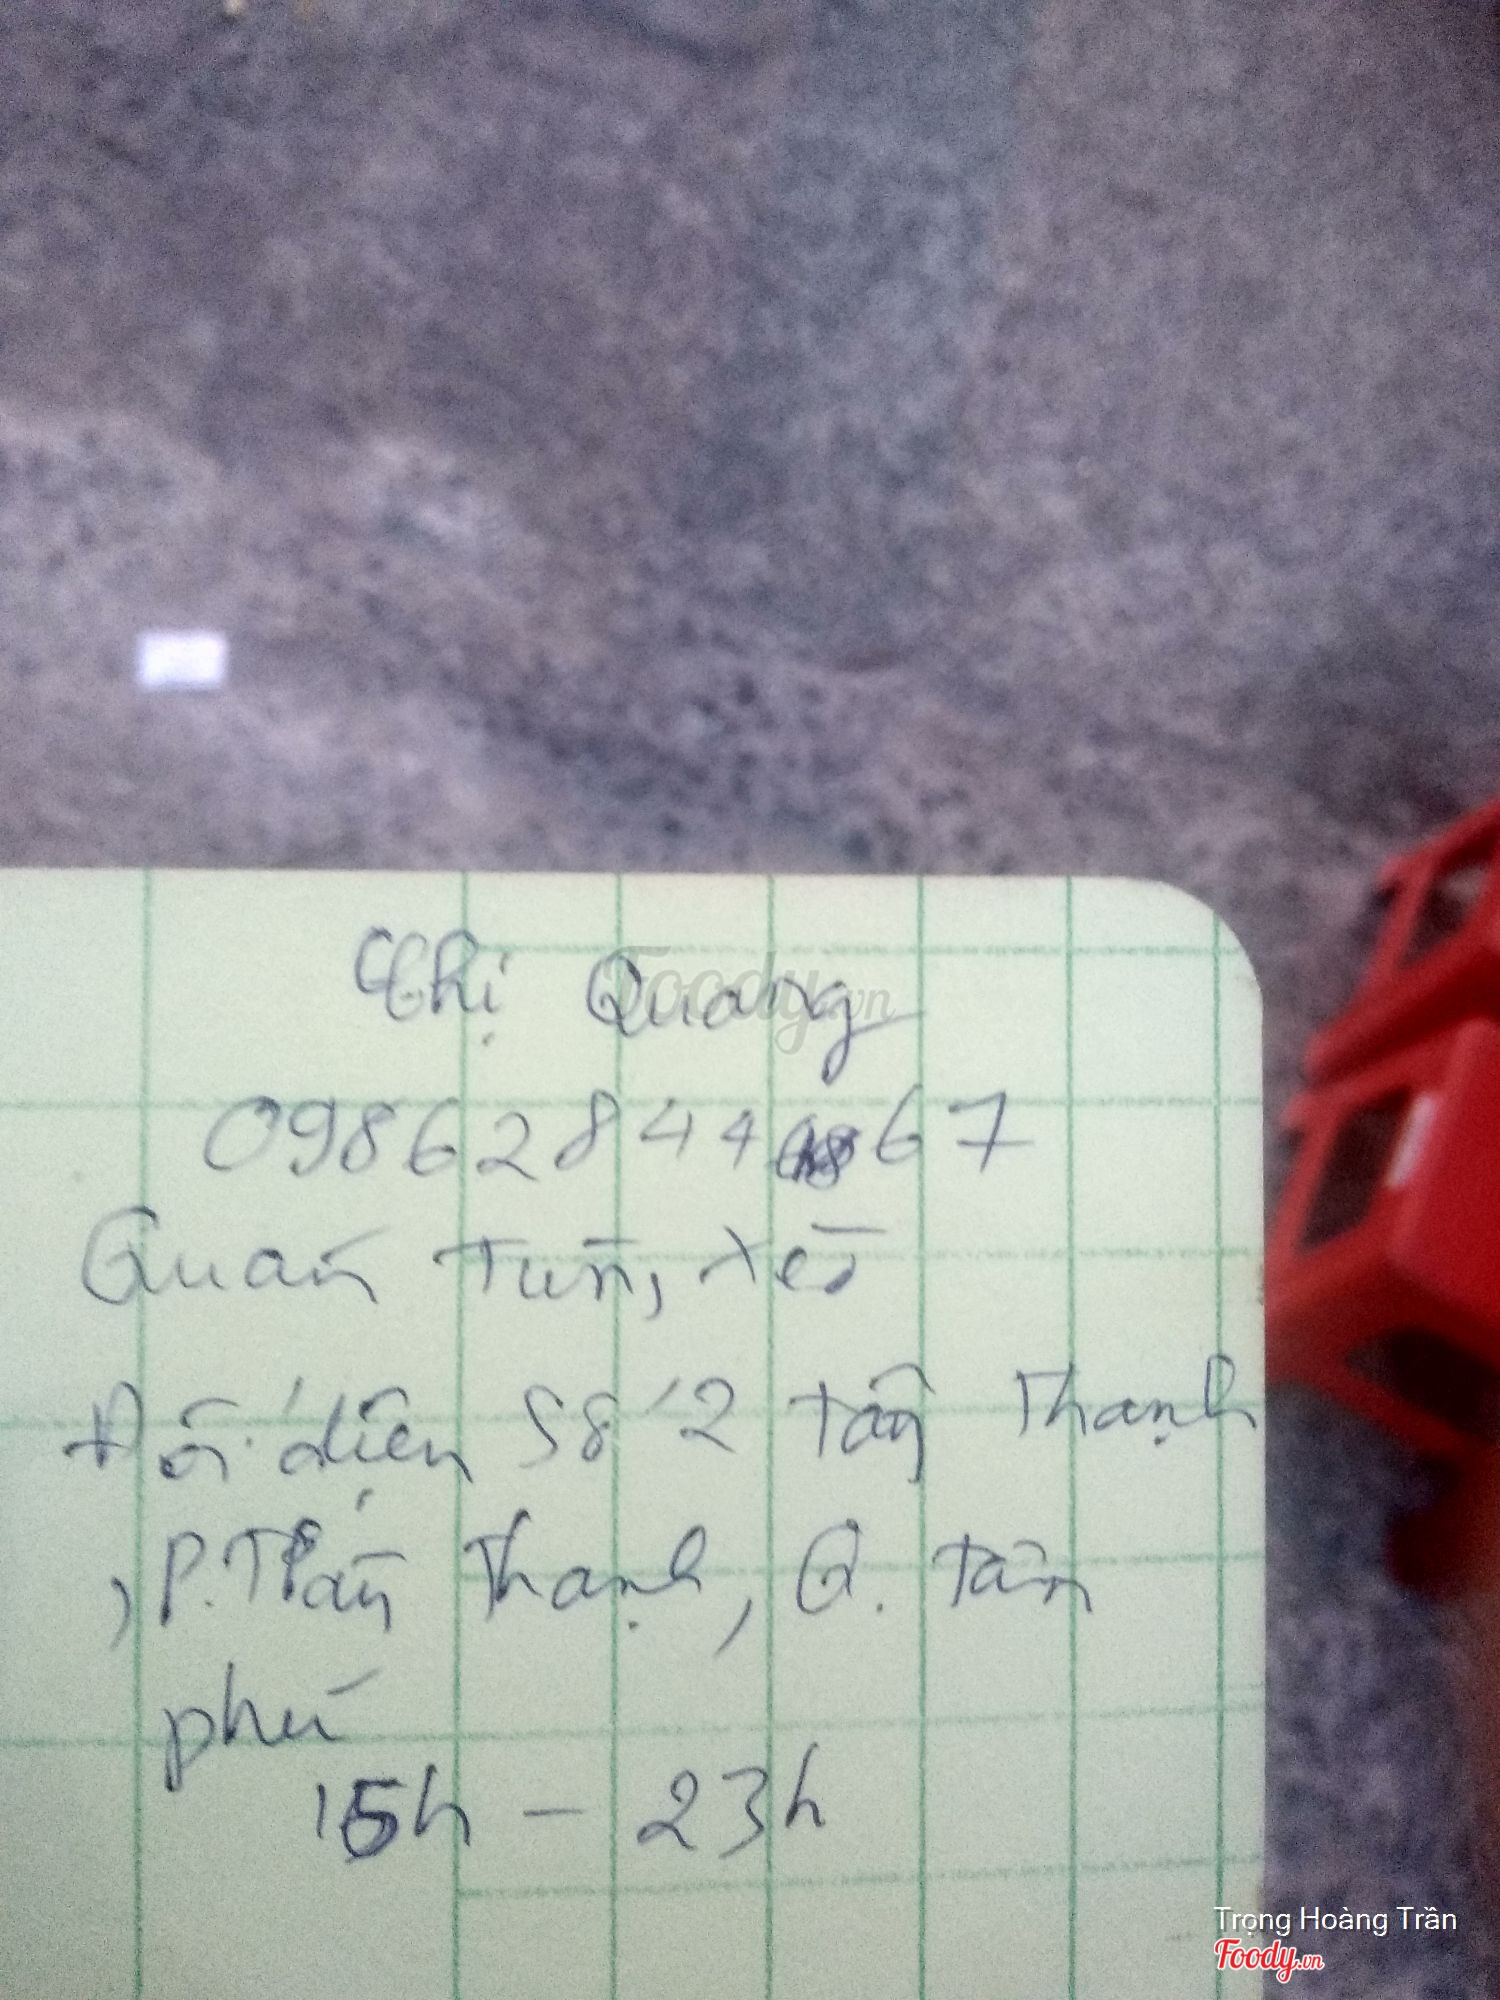 Chị Quang
0986284467
Quán Tùng xèo
Đối diện Số 2 Tân Thạnh
, P. Tân Thạnh, Q. Tân
phú
15h - 23h
Foody.vn
Trọng Hoàng Trần
Foody.vn